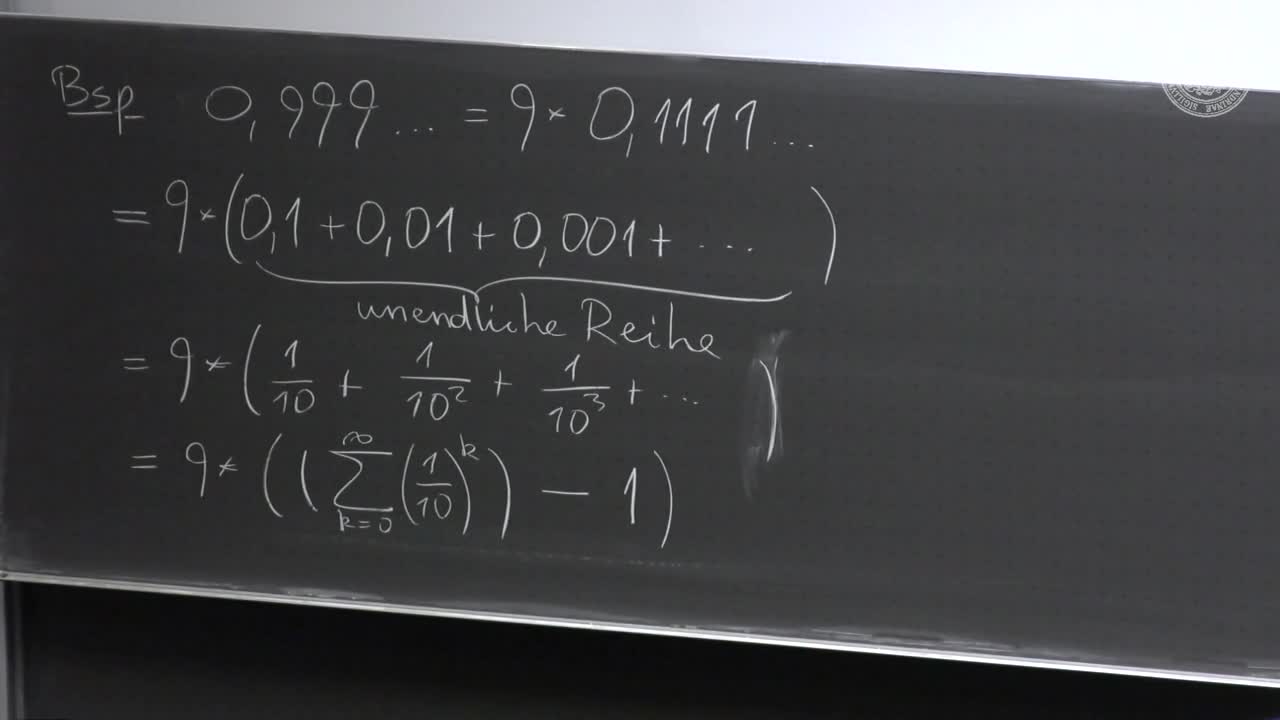 Bsp 0,999... = 9 * 0,1111...
= 9 * (0,1 + 0,01 + 0,001 + ... )
unendliche Reihe
= 9 * ( 1/10 + 1/10² + 1/10³ + ... )
= 9 * ( ( ∑_{k=0}^{∞} (1/10)^k ) − 1 )